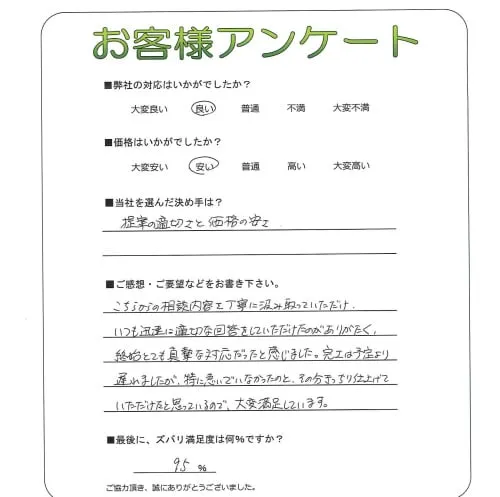 お客様アンケート
■弊社の対応はいかがでしたか？
大変良い 良い 普通 不満 大変不満
■価格はいかがでしたか？
大変安い 安い 普通 高い 大変高い
■当社を選んだ決め手は？
提案の適切さと価格の安さ
■ご感想・ご要望などをお書き下さい。
こちらからの相談内容を丁寧に汲み取っていただけ、
いつも迅速に適切な回答をしていただけたのがありがたく、
終始とても真摯な対応だったと感じました。完工は予定より
遅れましたが、特に急いでいなかったのと、その分きっちり仕上げて
いただけたと思っているので、大変満足しています。
■最後に、ズバリ満足度は何％ですか？
95 %
ご協力頂き、誠にありがとうございました。